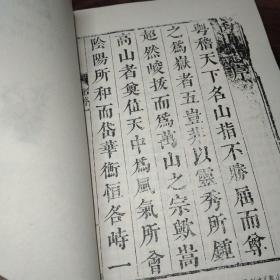 序
粵稽天下名山指不勝屈而尊
之為嶽者五豈非以靈秀所鍾
超然峻拔而為萬山之宗歟嵩
高山者奠位天中為風氣所會
陰陽所和而岱華衡恒各峙一